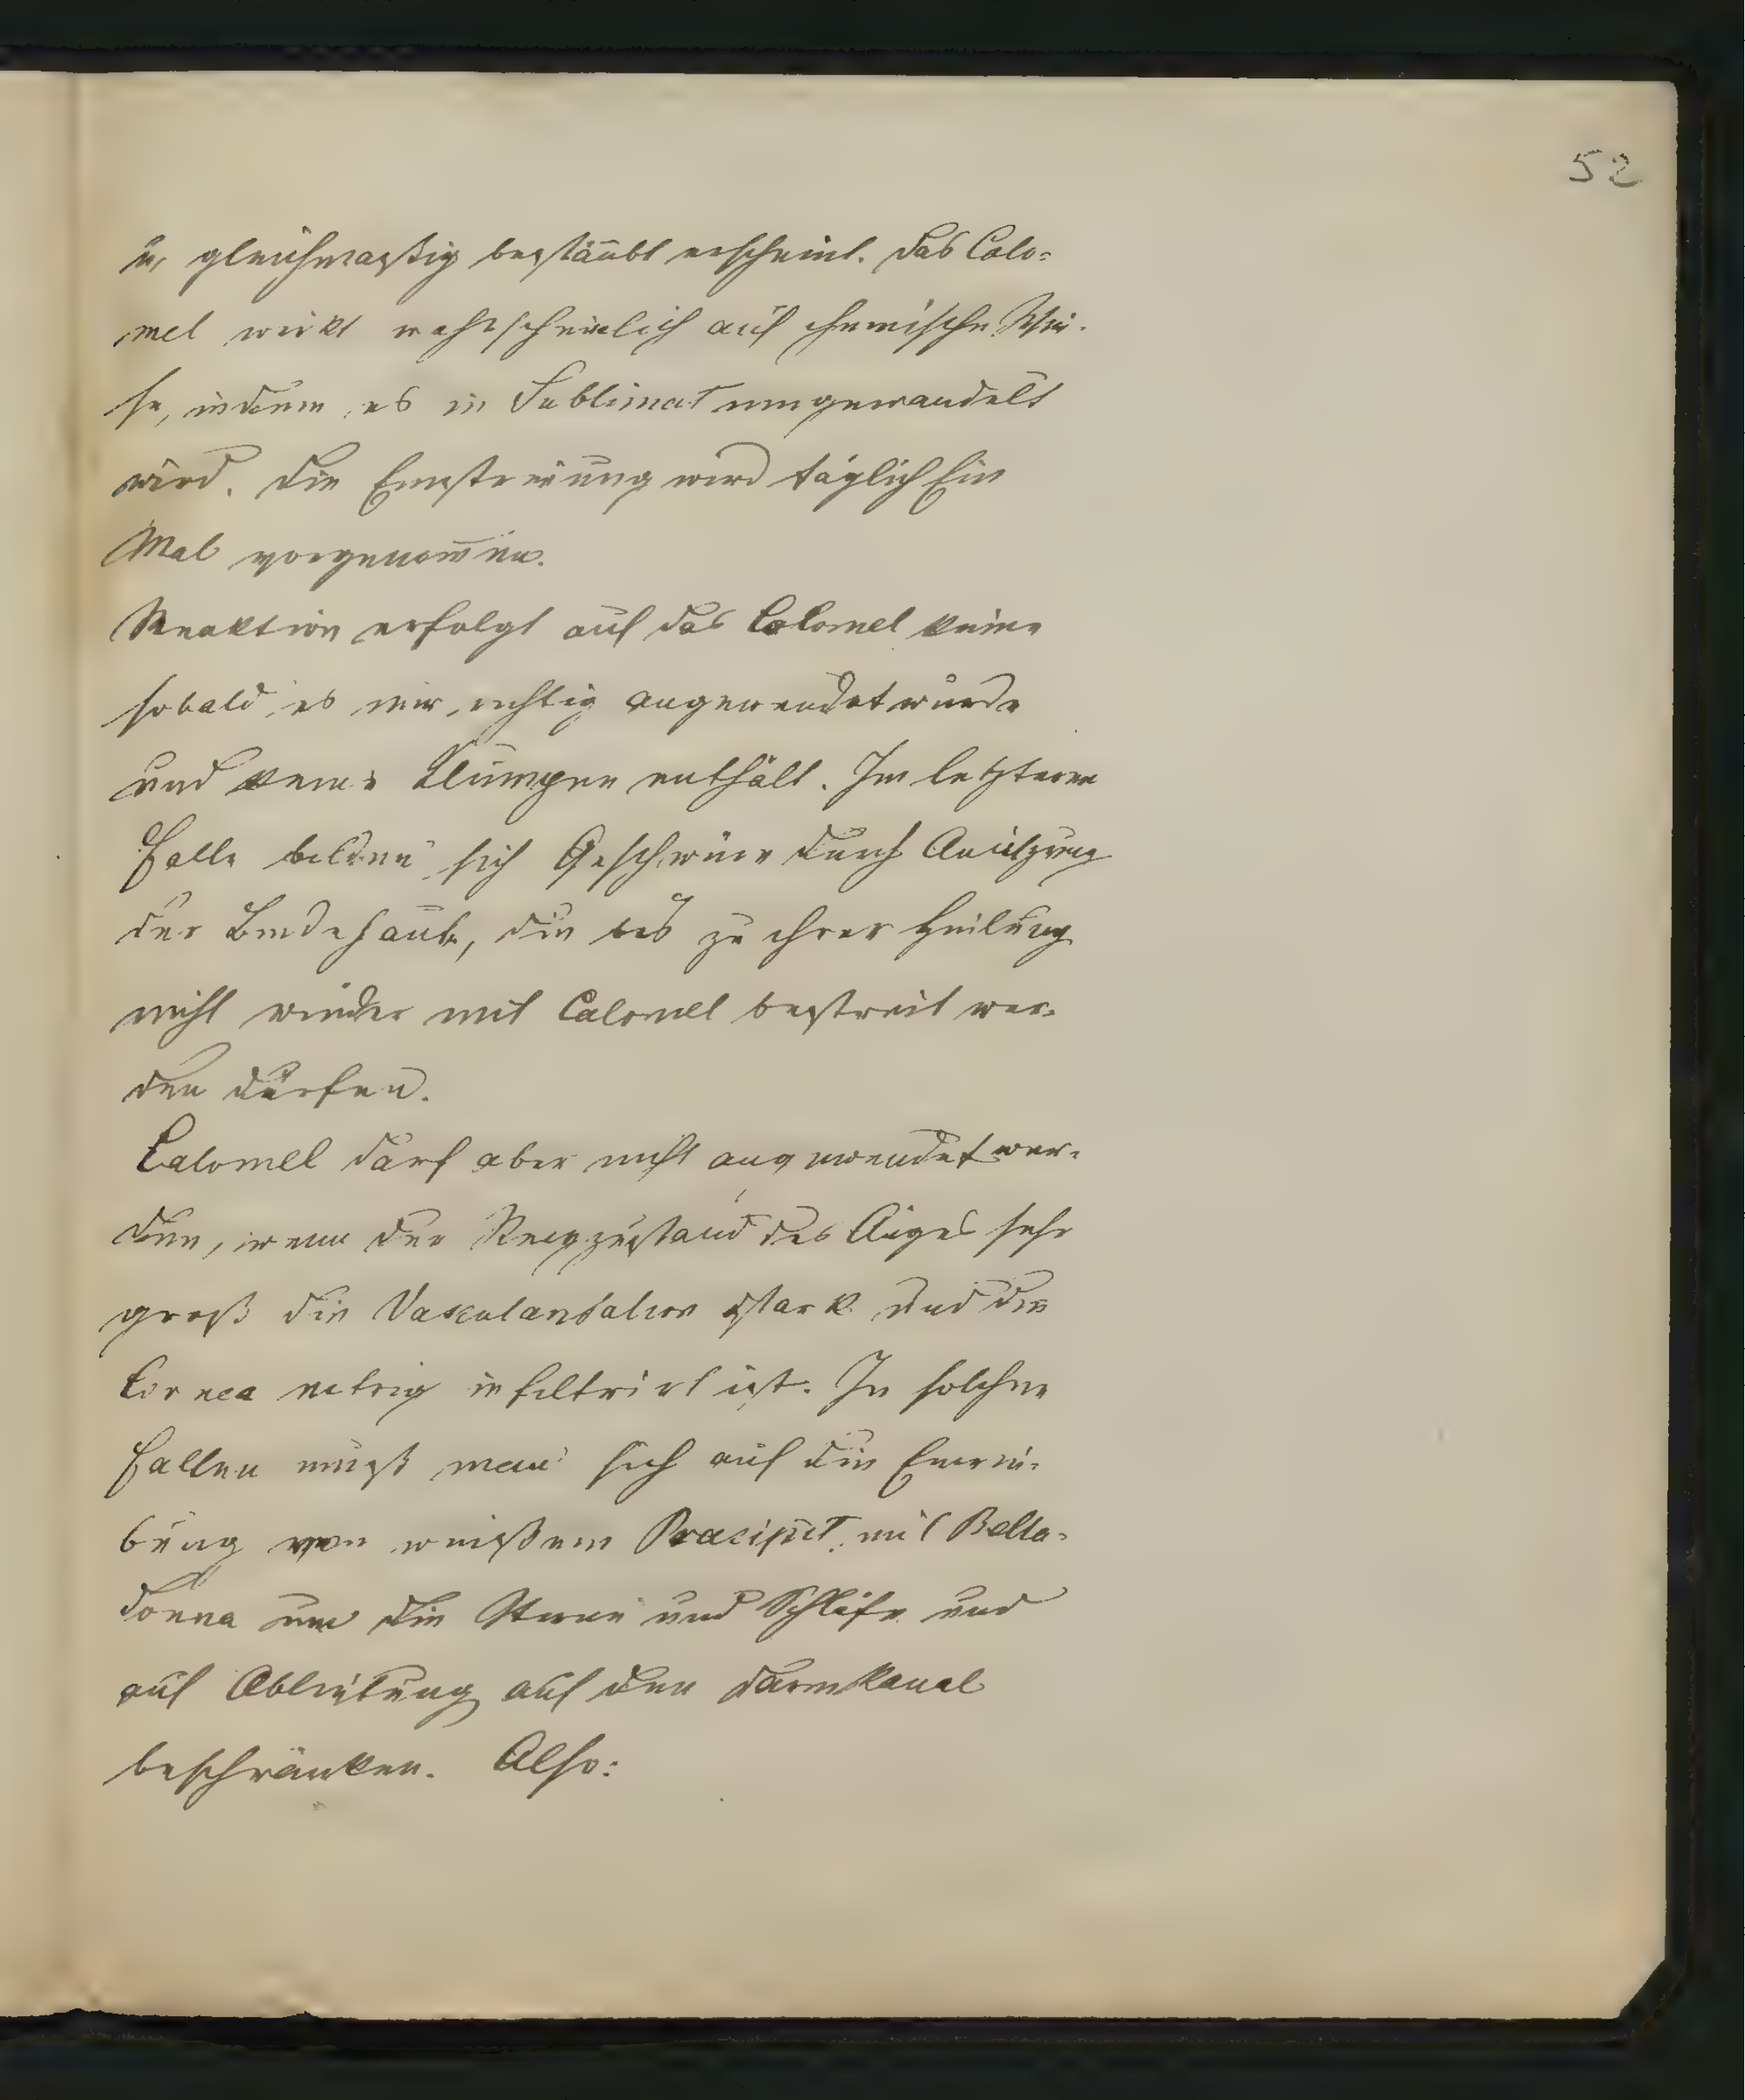 52
u, gleichmaßig bestäubt erscheint. Das Calo-
mel wirkt wahrscheinlich auf chemische Wei-
se, indem es in Sublimat umgewandelt
wird. Die Einstreuung wird täglich Ein
Mal vorgenom̄en.
Reaktion erfolgt auf das Calomel keine
sobald es nur richtig angewendet wurde
und keine Klumpen enthält. Im letzteren
Falle bilden sich Geschwüre durch Anätzung
der Bindehaut, die bis zu ihrer Heilung
nicht wieder mit Calomel bestreut wer-
den dürfen.
Calomel darf aber nicht angewendet wer-
den, wenn der Reizzustand des Auges sehr
groß die Vascularisation stark und die
Cornea eitrig infiltrirt ist. In solchen
Fallen muß man sich auf die Einrei-
bung von weißem Pracipit. mit Bella-
donna um die Stirne und Schläfe und
auf Ableitung auf den Darmkanal
beschränken. Also: